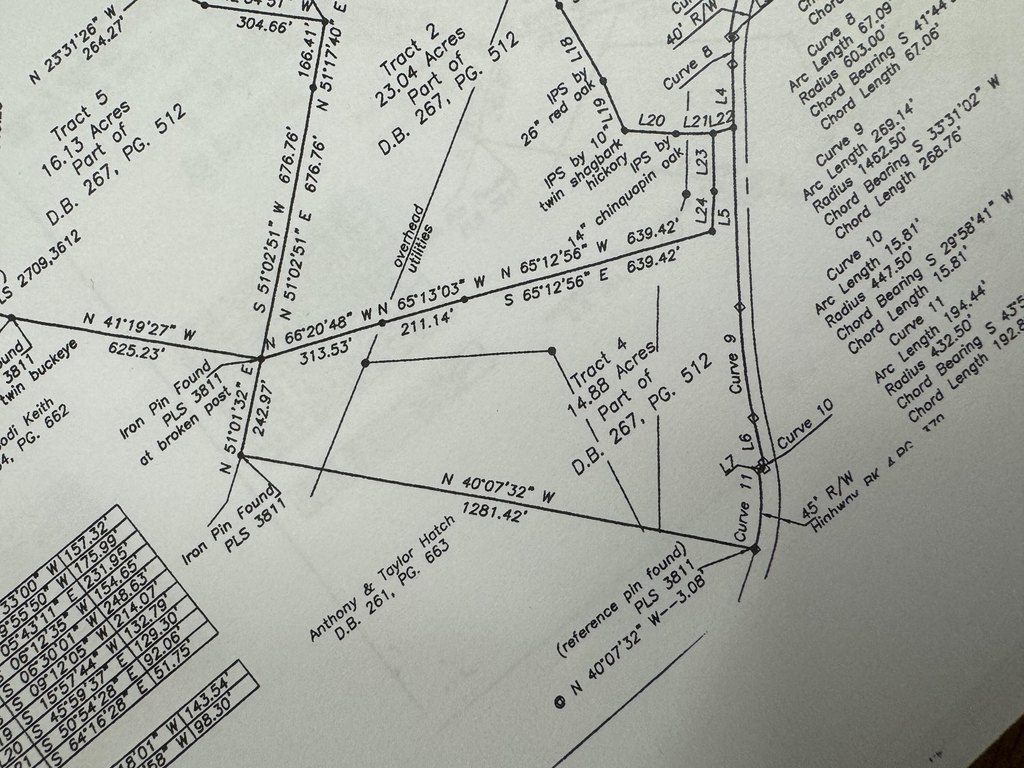 N 23°31'26" W
264.27'
304.66'
166.41'
N 51°17'40" E
Tract 5
16.13 Acres
Part of
D.B. 267, PG. 512
Tract 2
23.04 Acres
Part of
D.B. 267, PG. 512
S 51°02'51" W 676.76'
N 51°02'51" E 676.76'
overhead
utilities
L18
L19
IPS by
26" red oak
L20
L21
L22
L23
L24
L4
L5
IPS by 10"
twin shagbark
hickory
IPS by
14" chinquapin oak
40' R/W
Curve 8
Curve 8
Arc Length 67.09'
Radius 603.00'
Chord Bearing S 41°44'
Chord Length 67.06'
Curve 9
Arc Length 269.14'
Radius 1462.50'
Chord Bearing S 33°31'02" W
Chord Length 268.76'
Curve 10
Arc Length 15.81'
Radius 447.50'
Chord Bearing S 29°58'41" W
Chord Length 15.81'
Curve 11
Arc Length 194.44'
Radius 432.50'
Chord Bearing S 43°5
Chord Length 192.8
LS 2709,3612
N 41°19'27" W
625.23'
N 66°20'48" W
313.53'
N 65°13'03" W
211.14'
N 65°12'56" W 639.42'
S 65°12'56" E 639.42'
3811
twin buckeye
Keith
PG. 662
Iron Pin Found
PLS 3811
at broken post
N 51°01'32" E
242.97'
Iron Pin Found
PLS 3811
Tract 4
14.88 Acres
Part of
D.B. 267, PG. 512
Curve 9
L6
L7
Curve 10
Curve 11
45' R/W
N 40°07'32" W
1281.42'
Anthony & Taylor Hatch
D.B. 261, PG. 663
(reference pin found)
PLS 3811
N 40°07'32" W--3.08'
33'00" W 157.32'
9°55'50" W 175.99'
05°43'11" E 231.95'
S 06°12'35" W 154.65'
S 06°30'01" W 248.63'
S 09°12'05" W 214.07'
S 15°57'44" W 132.79'
S 45°59'37" E 129.30'
L20 S 50°54'28" E 92.06'
S 64°16'28" E 51.75'
8'01" W 143.54'
58" W 98.30'